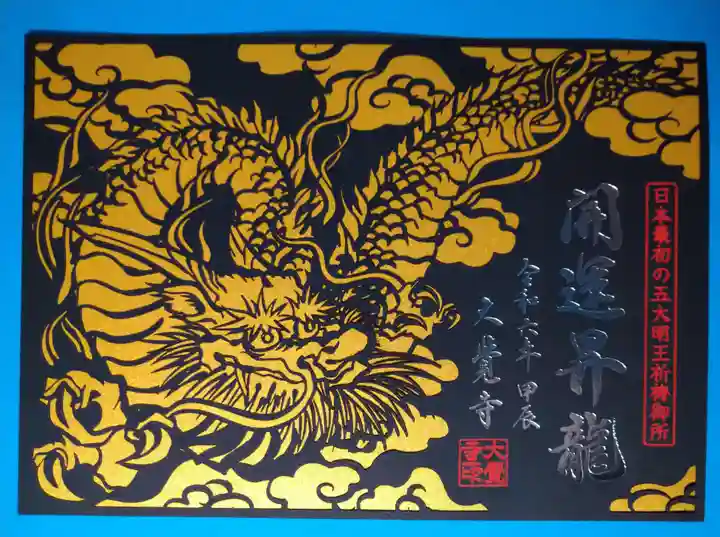 日本最初の五大明王祈祷御所
開運昇龍
令和六年 甲辰
大覺寺
大覺
寺印